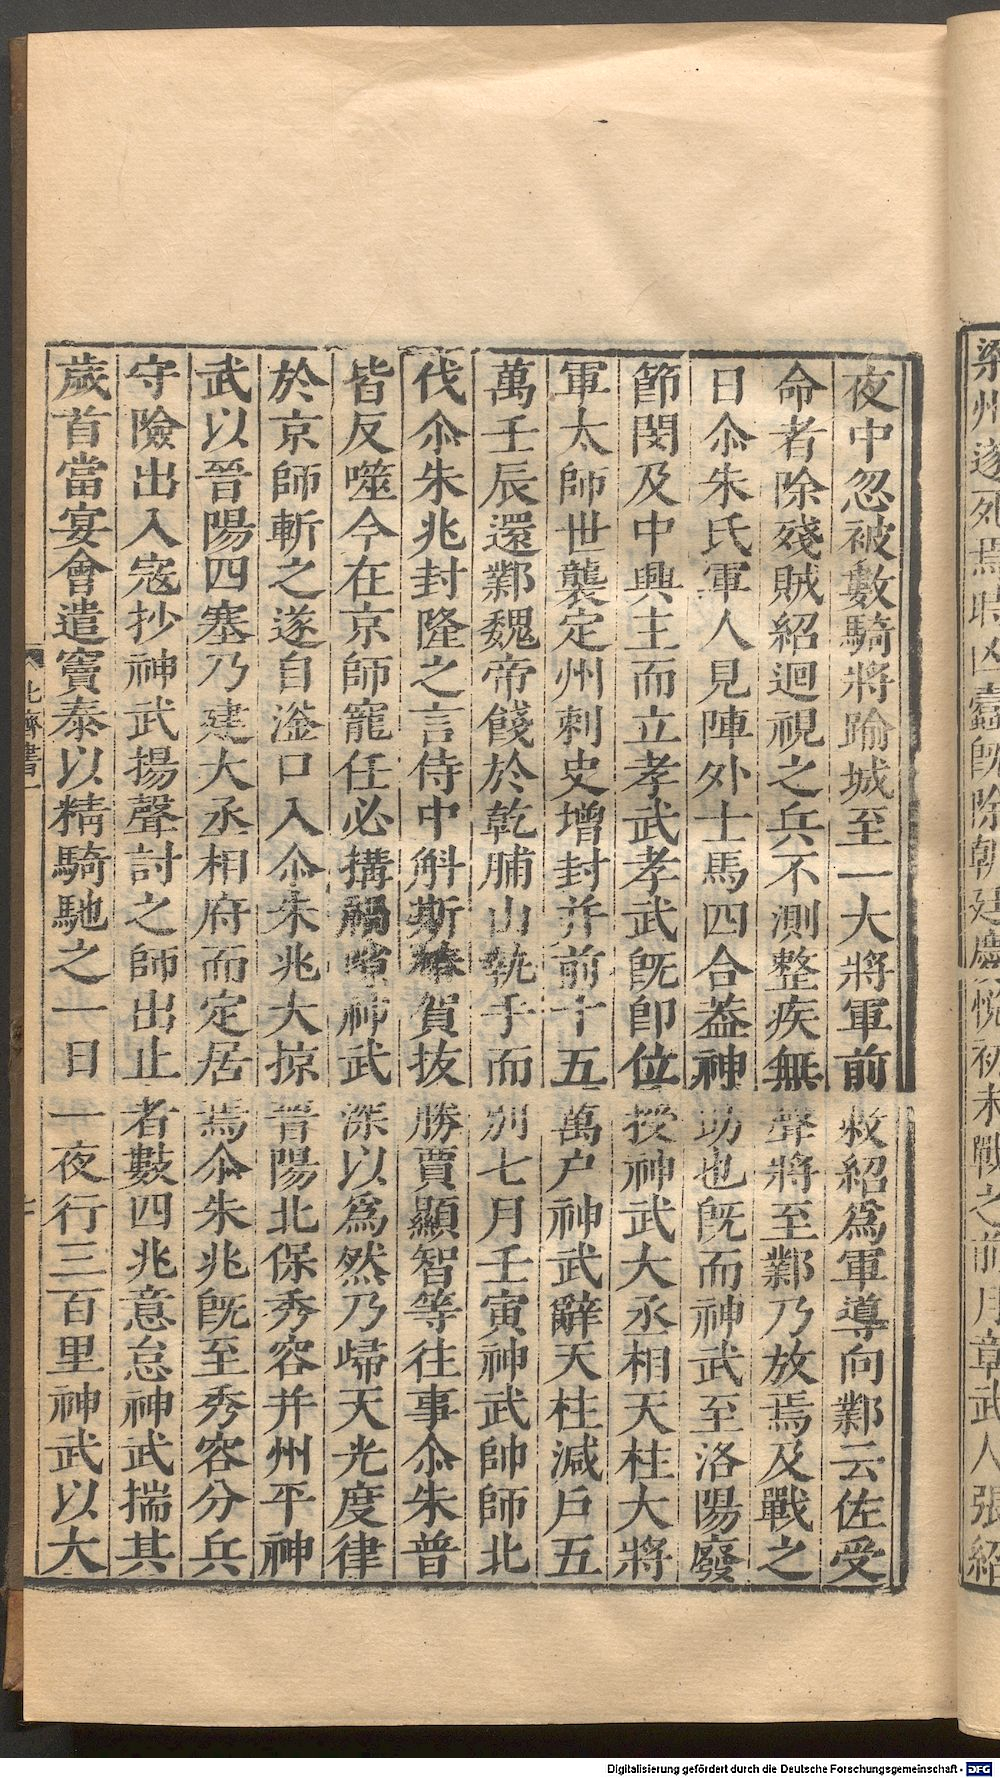 夜中忽被數騎將踰城至一大將軍前救紹爲軍導向鄴云佐受
命者除殘賊紹迴視之兵不測整疾無聲將至鄴乃放焉及戰之
日尒朱氏軍人見陣外士馬四合蓋神助也旣而神武至洛陽廢
節閔及中興主而立孝武孝武旣卽位授神武大丞相天柱大將
軍太師世襲定州刺史增封并前十五萬户神武辭天柱減戶五
萬壬辰還鄴魏帝餞於乾脯山執手而別七月壬寅神武帥師北
伐尒朱兆封隆之言侍中斛斯椿賀抜勝賈顯智等往事尒朱普
皆反噬今在京師寵任必搆禍隙神武深以爲然乃歸天光度律
於京師斬之遂自滏口入尒朱兆大掠晉陽北保秀容并州平神
武以晉陽四塞乃建大丞相府而定居焉尒朱兆旣至秀容分兵
守險出入寇抄神武揚聲討之師出止者數四兆意怠神武揣其
歲首當宴會遣竇泰以精騎馳之一日一夜行三百里神武以大
北齊書一
梁州遂死焉時凶蠹旣除朝廷慶悅初未戰之前月章武人張紹
Digitalisierung gefördert durch die Deutsche Forschungsgemeinschaft - DFG